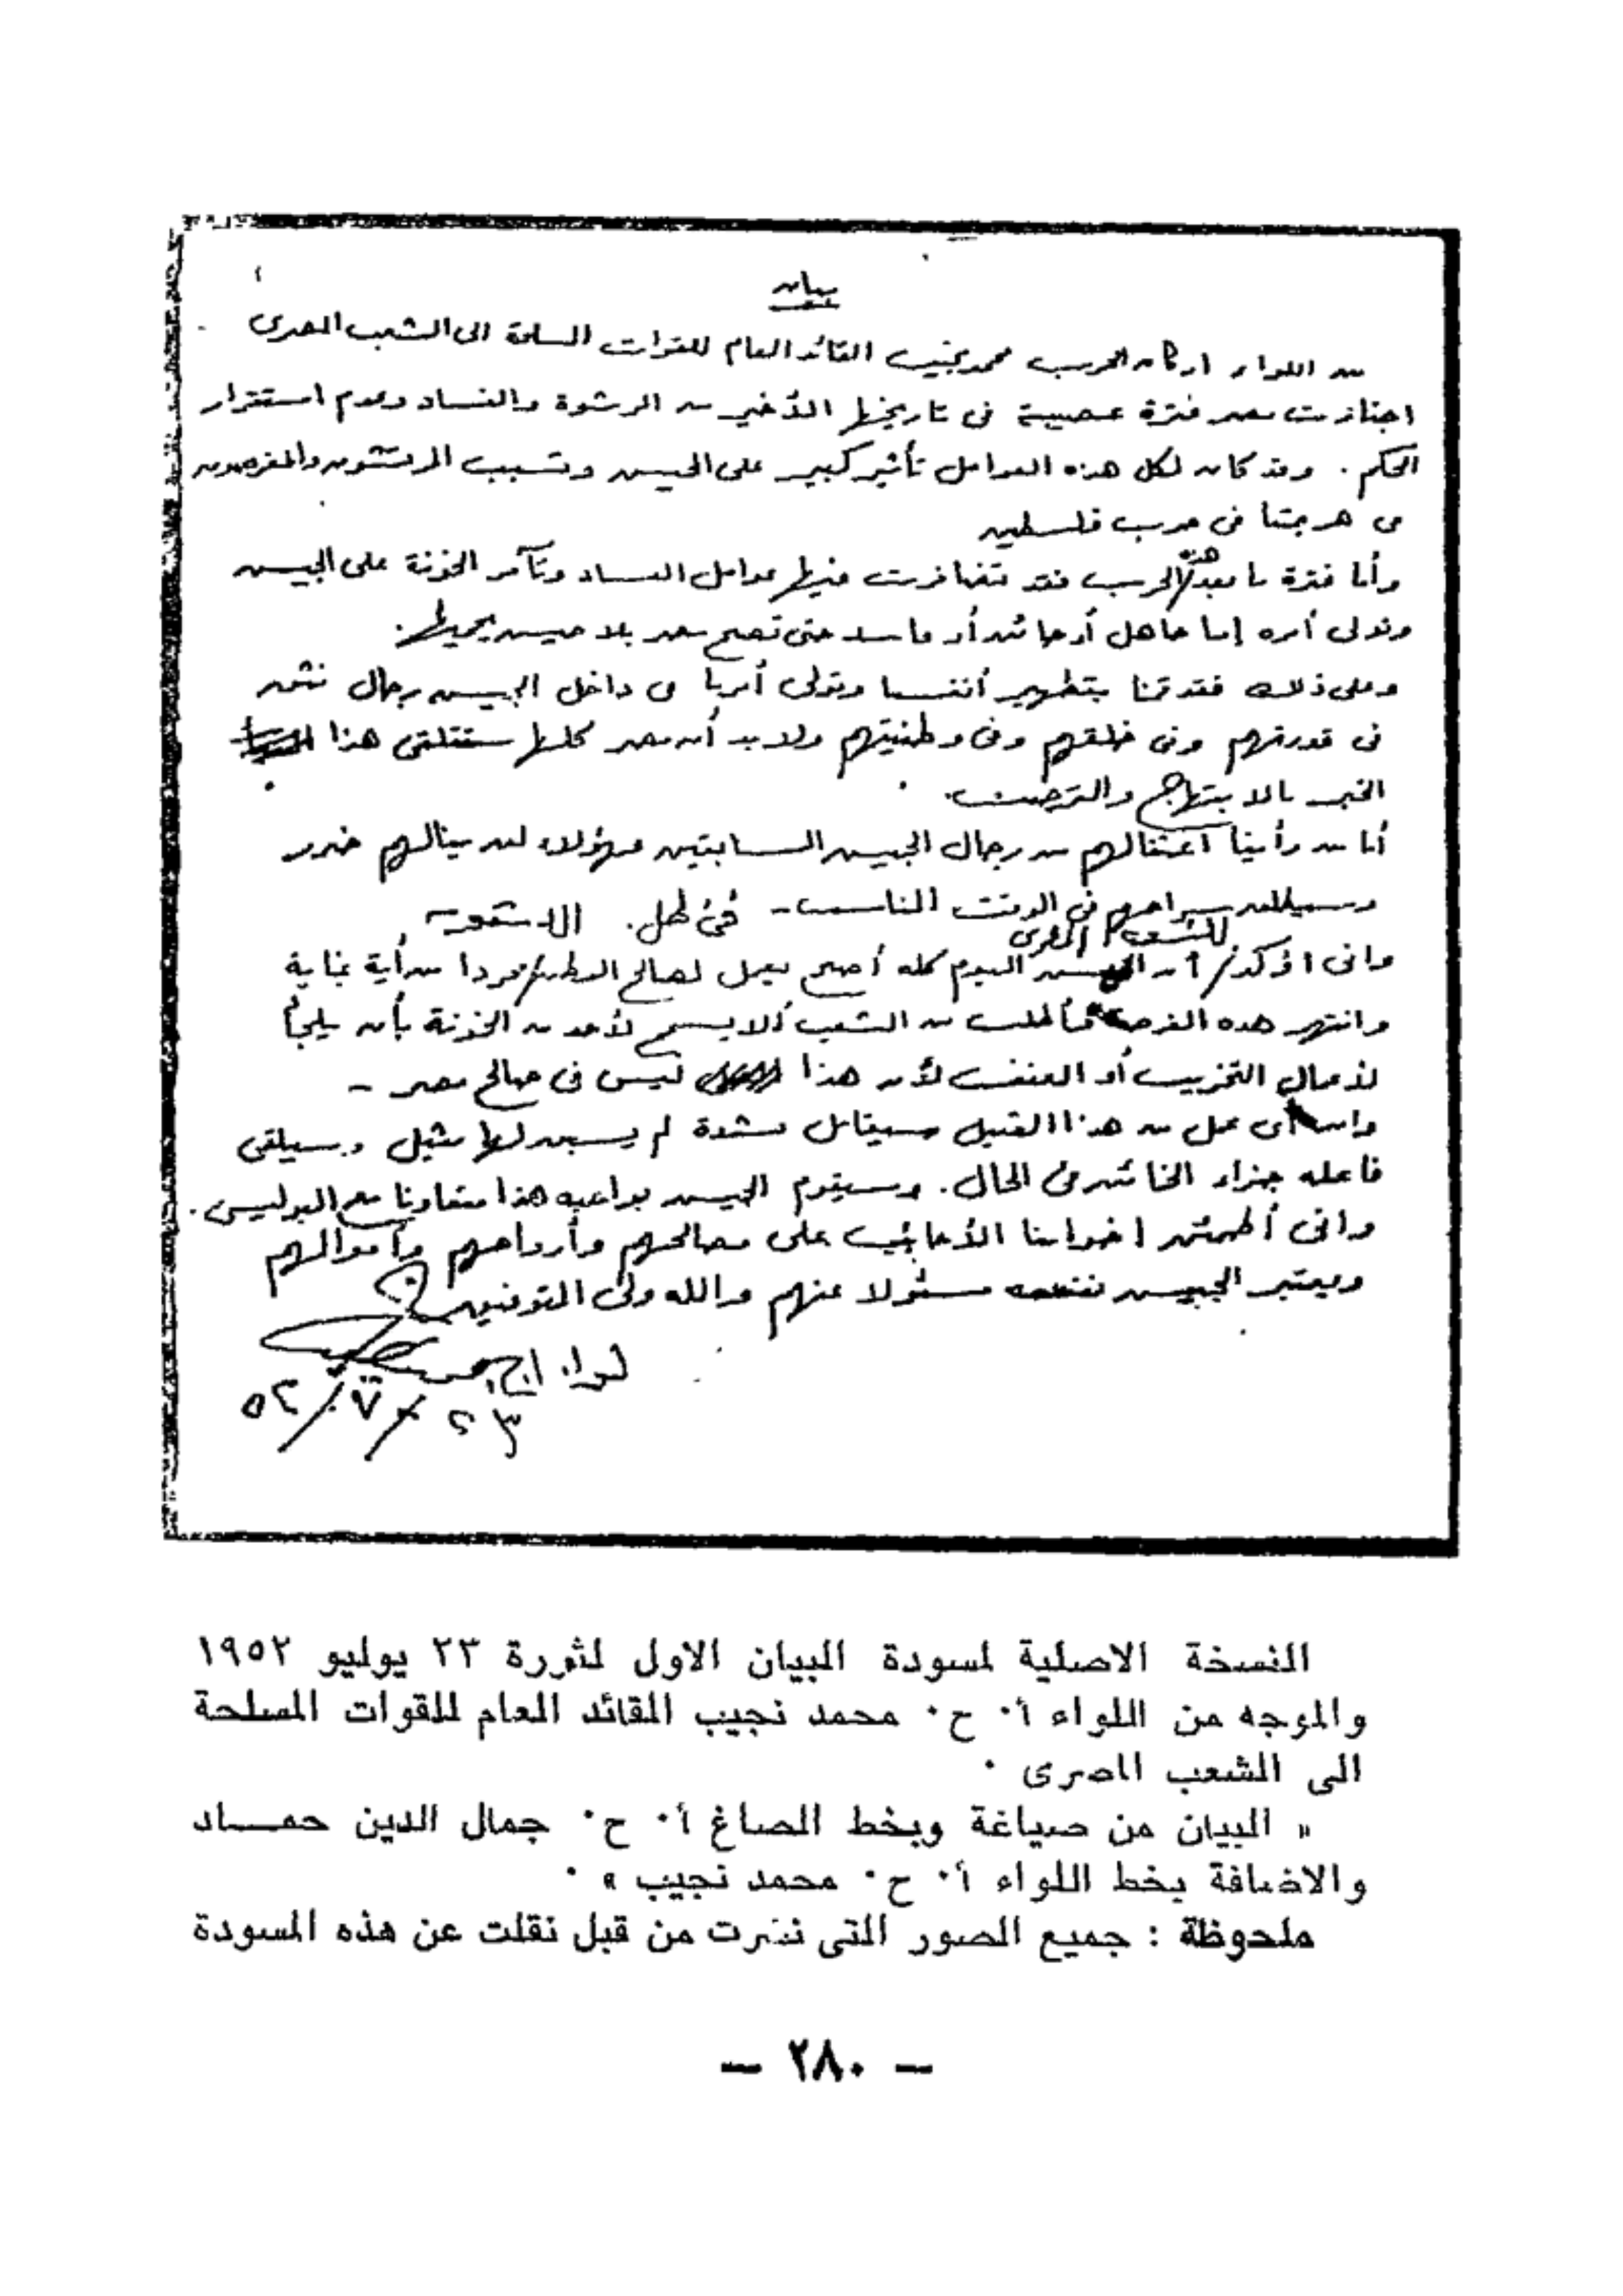 بيان
من اللواء اركان الحرب محمد نجيب القائد العام للقوات المسلحة الى الشعب المصرى
اجتازت مصر فترة عصيبة فى تاريخها الأخير من الرشوة والفساد وعدم استقرار
الحكم . وقد كان لكل هذه العوامل تأثير كبير على الجيش وتسبب المرتشون والمغرضون
فى هزيمتنا فى حرب فلسطين
وأما فترة ما بعد هذه الحرب فقد تضافرت فيها عوامل الفساد وتآمر الخونة على الجيش
وتولى أمره إما جاهل أو خائن أو فاسد حتى تصبح مصر بلا جيش يحميها .
وعلى ذلك فقد قمنا بتطهير أنفسنا وتولى أمرنا فى داخل الجيش رجال نثق
فى قدرتهم وفى خلقهم وفى وطنيتهم ولا بد أن مصر كلها ستتلقى هذا
الخبر بالابتهاج والترحيب .
أما من رأينا اعتقالهم من رجال الجيش السابقين فهؤلاء لن ينالهم ضرر
وسيطلق سراحهم فى الوقت المناسب -
وانى اؤكد للشعب المصرى أن الجيش اليوم كله أصبح يعمل لصالح الوطن مجردا من أية غاية
وانتهز هذه الفرصة فأطلب من الشعب ألا يسمح لأحد من الخونة بأن يلجأ
لأعمال التخريب أو العنف لأن هذا ليس فى صالح مصر -
وان أى عمل من هذا القبيل سيقابل بشدة لم يسبق لها مثيل وسيلقى
فاعله جزاء الخائن فى الحال . وسيقوم الجيش بواجبه هذا متعاونا مع البوليس .
وانى أطمئن اخواننا الأجانب على مصالحهم وأرواحهم وأموالهم
ويعتبر الجيش نفسه مسئولا عنهم والله ولى التوفيق
لواء أ ح
٢٣ / ٧ / ٥٢
النسخة الاصلية لمسودة البيان الاول لثورة ٢٣ يوليو ١٩٥٢
والموجه من اللواء أ٠ ح٠ محمد نجيب القائد العام للقوات المسلحة
الى الشعب المصرى ٠
« البيان من صياغة وبخط الصاغ أ٠ ح٠ جمال الدين حمـــاد
والاضافة بخط اللواء أ٠ ح٠ محمد نجيب » ٠
ملحوظة : جميع الصور التى نشرت من قبل نقلت عن هذه المسودة
— ٢٨٠ —